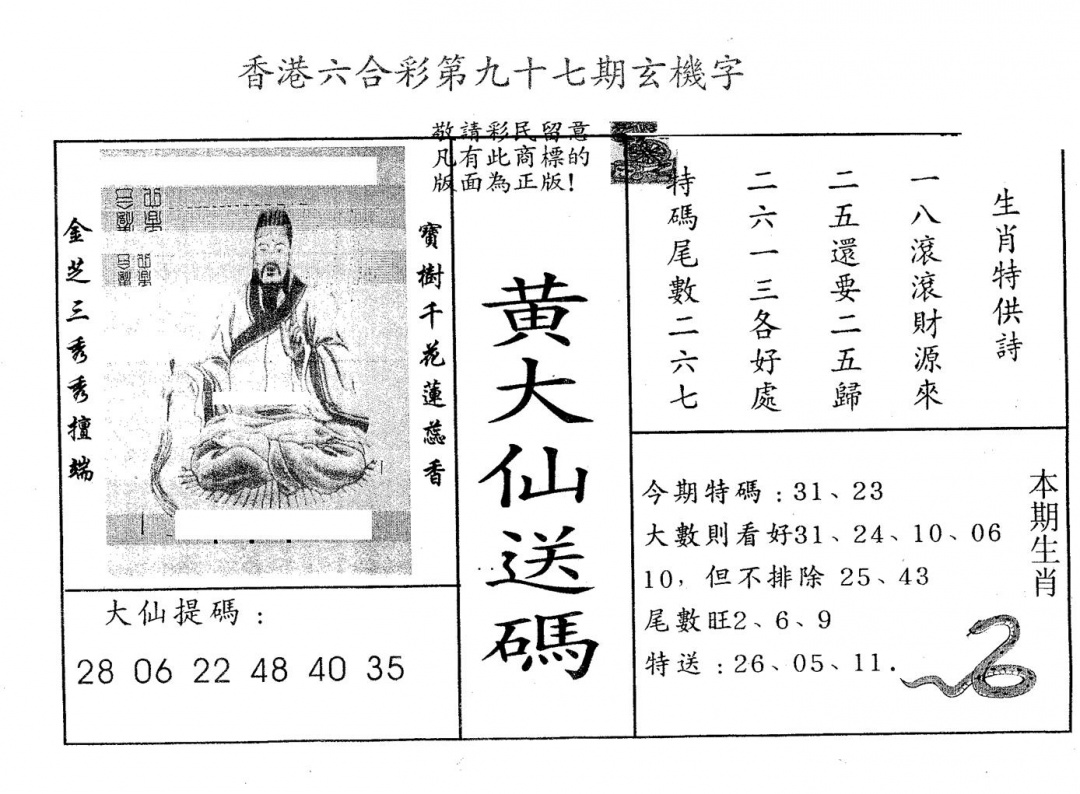 香港六合彩第九十七期玄機字
敬請彩民留意
凡有此商標的
版面為正版!
金芝三秀秀擅端
寶樹千花蓮蕊香
大仙提碼：
28 06 22 48 40 35
黄大仙送碼
生肖特供詩
一八滾滾財源來
二五還要二五歸
二六一三各好處
特碼尾數二六七
本期生肖
今期特碼：31、23
大數則看好31、24、10、06
10，但不排除 25、43
尾數旺2、6、9
特送：26、05、11.